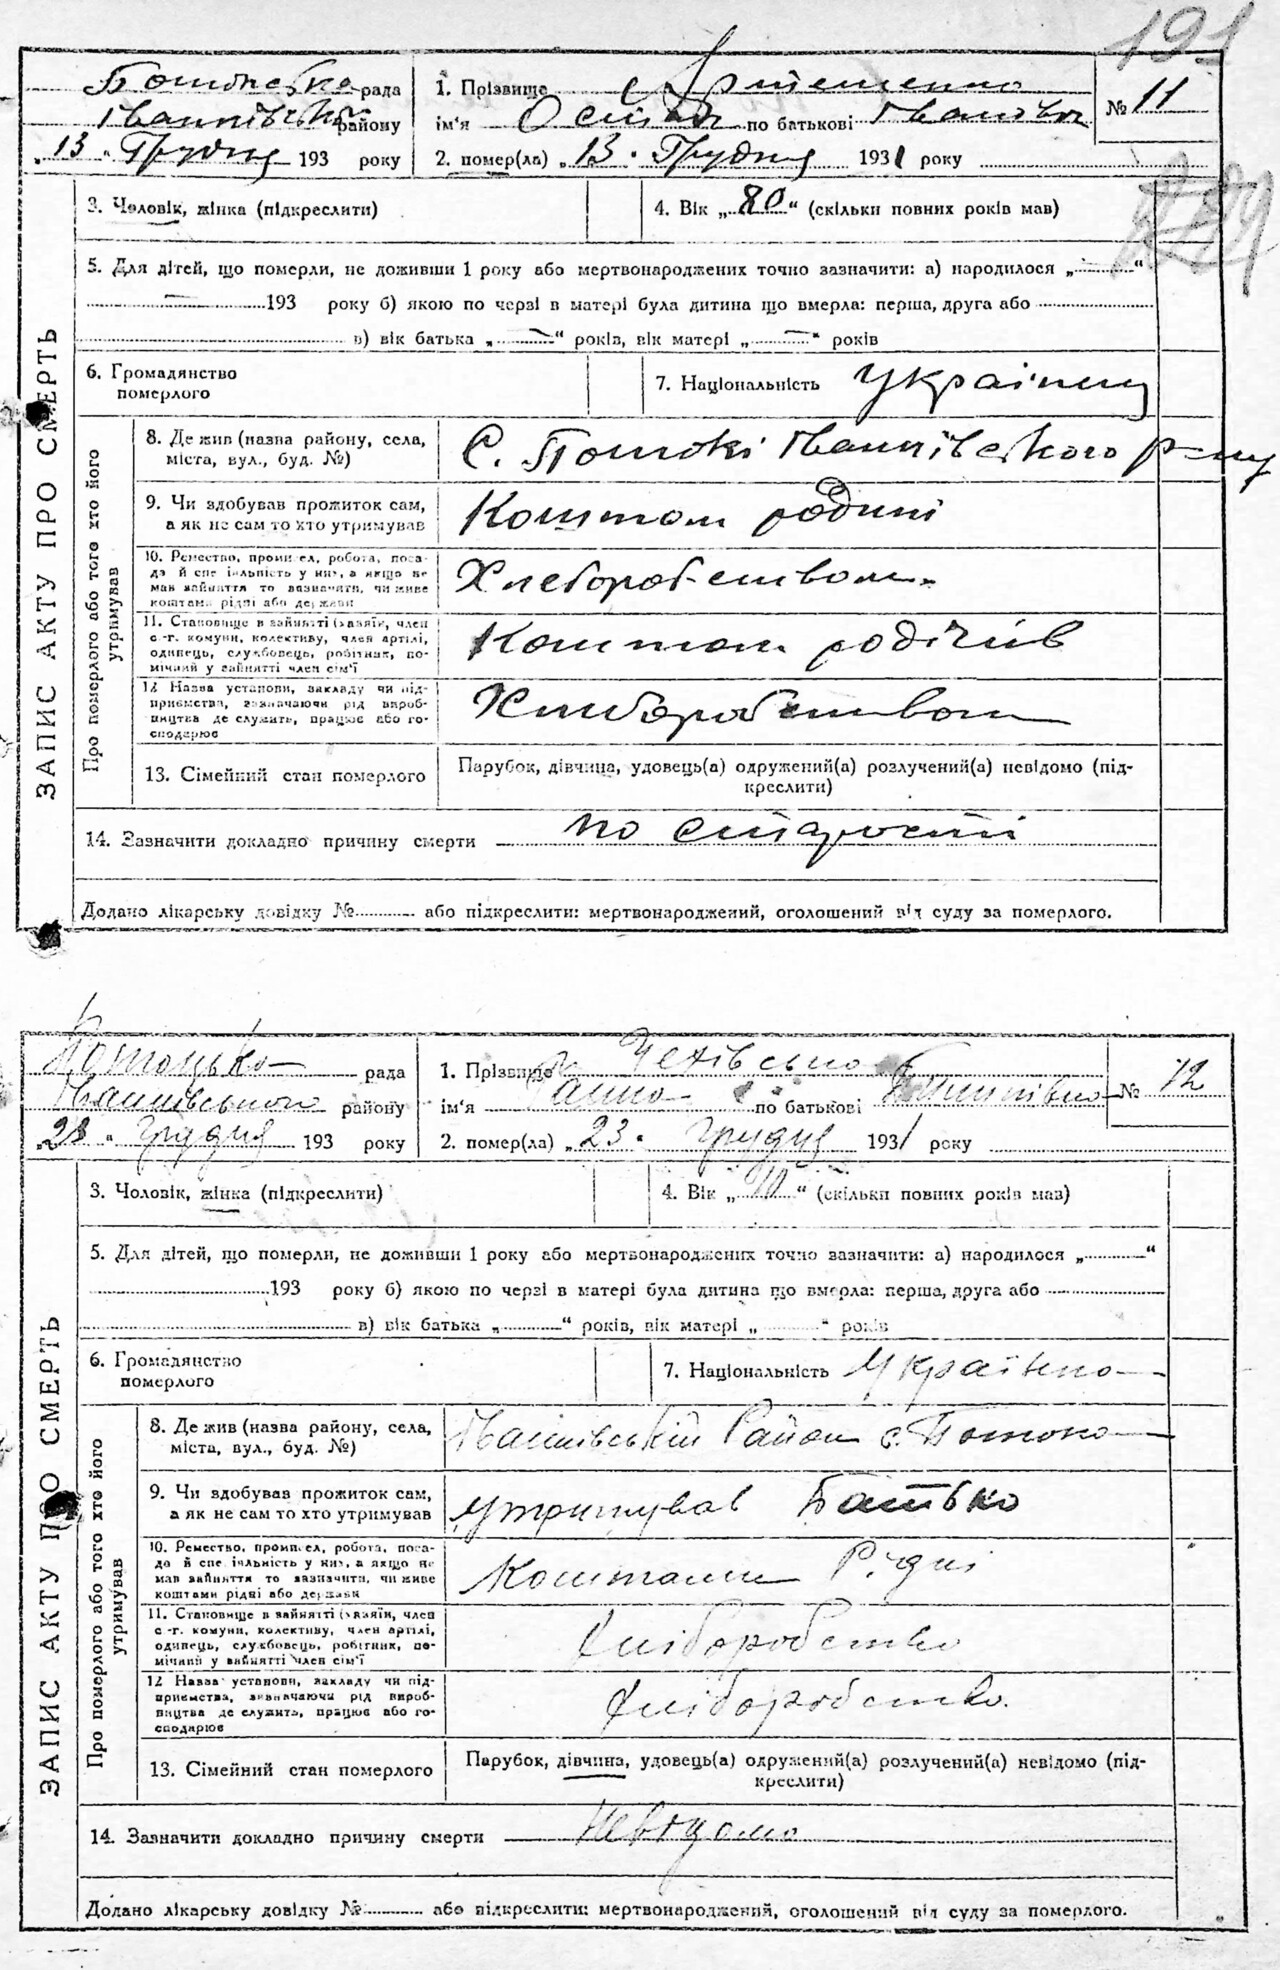 191
Потокська рада
Іванпівська району
„13“ Грудня 193 року
1. Прізвище Артеменко
ім'я Осип по батькові Іванович
2. помер(ла) „13“ Грудня 1931 року
№ 11
3. Чоловік, жінка (підкреслити)
4. Вік „80“ (скільки повних років мав)
5. Для дітей, що померли, не доживши 1 року або мертвонароджених точно зазначити: а) народилося „—“
— 193 року б) якою по черзі в матері була дитина що вмерла: перша, друга або
в) вік батька „—“ років, вік матері „—“ років
6. Громадянство
померлого
7. Національність Українец
ЗАПИС АКТУ ПРО СМЕРТЬ
Про померлого або того хто його
утримував
8. Де жив (назва району, села,
міста, вул., буд. №)
С. Потокі Іванпівского р-ну
9. Чи здобував прожиток сам,
а як не сам то хто утримував
Коштом родині
10. Ремество, промисел, робота, поса-
да й спеціяльність у них, а якщо не
мав зайняття то зазначити, чи живе
коштами рідні або держави
Хлеборобством
11. Становище в зайнятті (хазяїн, член
с.-г. комуни, колективу, член артілі,
одинець, службовець, робітник, по-
мічний у зайнятті член сім'ї
Коштом родічів
12 Назва установи, закладу чи під-
приємства, зазначаючи рід вироб-
ництва де служить, працює або го-
сподарює
Хлиборобством
13. Сімейний стан померлого
Парубок, дівчина, удовець(а) одружений(а) розлучений(а) невідомо (під-
креслити)
14. Зазначити докладно причину смерти по старості
Додано лікарську довідку № або підкреслити: мертвонароджений, оголошений від суду за померлого.
Потоцько рада
Іванпівського району
„23“ грудня 193 року
1. Прізвище Чехівсько
ім'я Ганно по батькові
2. помер(ла) „23“ грудня 1931 року
№ 12
3. Чоловік, жінка (підкреслити)
4. Вік „ “ (скільки повних років мав)
5. Для дітей, що померли, не доживши 1 року або мертвонароджених точно зазначити: а) народилося „ “
193 року б) якою по черзі в матері була дитина що вмерла: перша, друга або
в) вік батька „ “ років, вік матері „ “ років
6. Громадянство
померлого
7. Національність Українко
ЗАПИС АКТУ ПРО СМЕРТЬ
Про померлого або того хто його
утримував
8. Де жив (назва району, села,
міста, вул., буд. №)
Іванпівській Район с. Потоко
9. Чи здобував прожиток сам,
а як не сам то хто утримував
утримував Батько
10. Ремество, промисел, робота, поса-
да й спеціяльність у них, а якщо не
мав зайняття то зазначити, чи живе
коштами рідні або держави
Коштами Рідні
11. Становище в зайнятті (хазяїн, член
с.-г. комуни, колективу, член артілі,
одинець, службовець, робітник, по-
мічний у зайнятті член сім'ї
Хліборобство
12 Назва установи, закладу чи під-
приємства, зазначаючи рід вироб-
ництва де служить, працює або го-
сподарює
Хліборобство.
13. Сімейний стан померлого
Парубок, дівчина, удовець(а) одружений(а) розлучений(а) невідомо (під-
креслити)
14. Зазначити докладно причину смерти Невідомо
Додано лікарську довідку № або підкреслити: мертвонароджений, оголошений від суду за померлого.